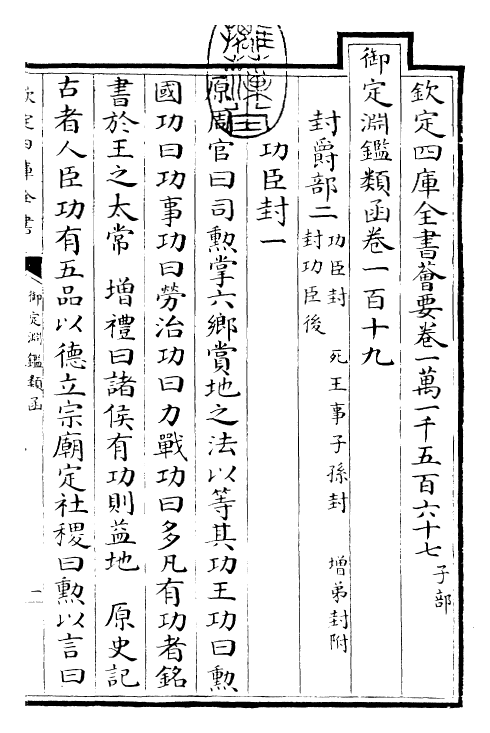 欽定四庫全書薈要卷一萬一千五百六十七 子部
御定淵鑑類函卷一百十九
封爵部二 功臣封 死王事子孫封 增弟封附
封功臣後
功臣封一
原周官曰司勲掌六鄉賞地之法以等其功王功曰勲
國功曰功事功曰勞治功曰力戰功曰多凡有功者銘
書於王之太常 增禮曰諸侯有功則益地 原史記
古者人臣功有五品以德立宗廟定社稷曰勲以言曰
欽定四庫全書
御定淵鑑類函